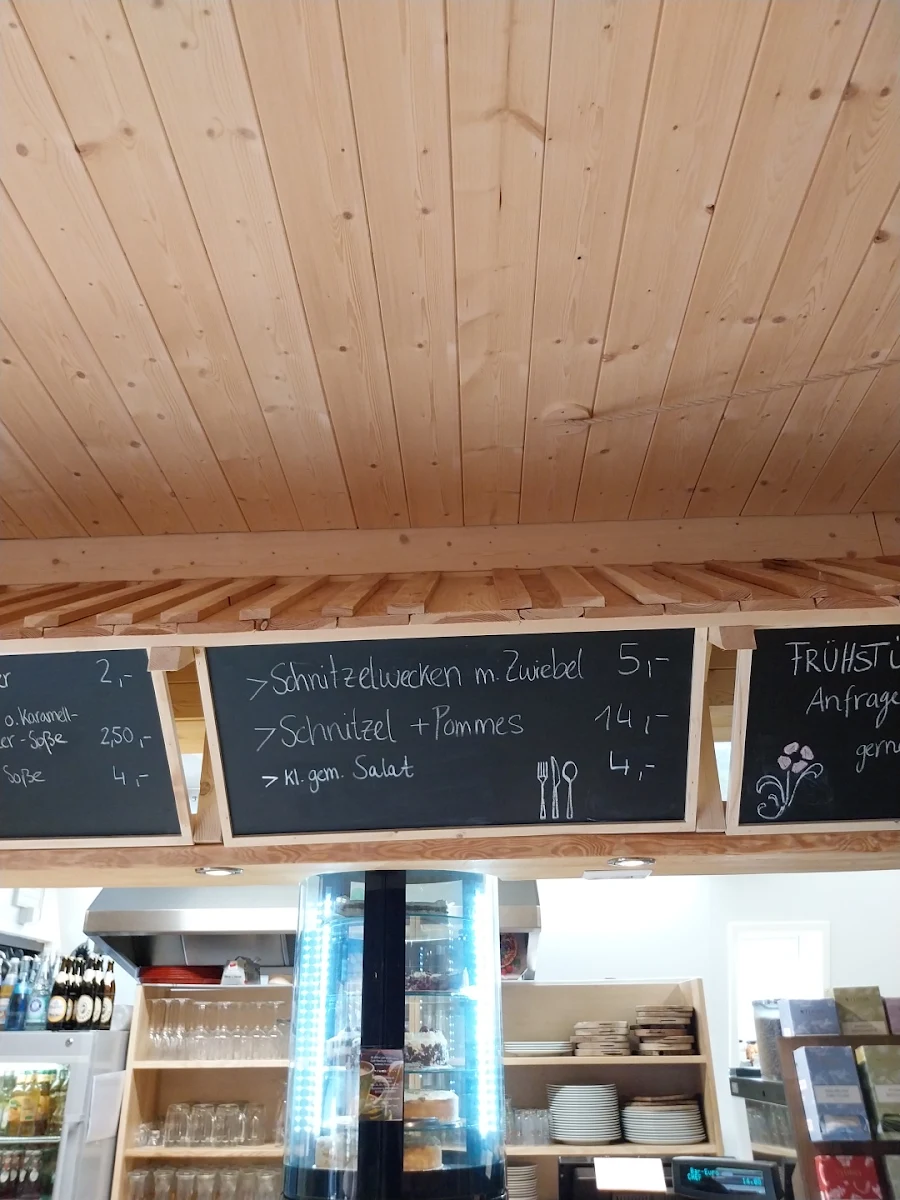 2,-
o. Karamell-
-Soße 2,50,-
Soße 4,-
>Schnitzelwecken m. Zwiebel 5,-
>Schnitzel +Pommes 14,-
>kl. gem. Salat 4,-
FRÜHSTÜ
Anfrage
gern